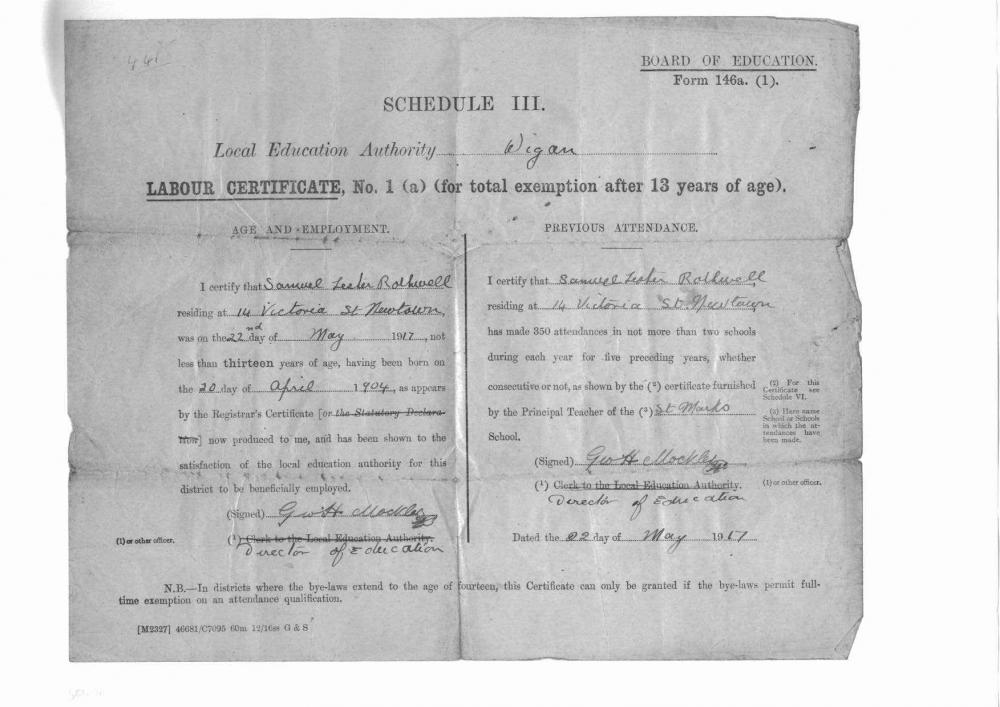 44
BOARD OF EDUCATION.
Form 146a. (1).
SCHEDULE III.
Local Education Authority Wigan
LABOUR CERTIFICATE, No. 1 (a) (for total exemption after 13 years of age).
AGE AND EMPLOYMENT.
I certify that Samuel Lester Rothwell
residing at 14 Victoria St Newtown,
was on the 22nd day of May 1917, not
less than thirteen years of age, having been born on
the 20 day of April 1904, as appears
by the Registrar's Certificate [or the Statutory Declara-
tion] now produced to me, and has been shown to the
satisfaction of the local education authority for this
district to be beneficially employed.
(Signed) Geo H Mockler
(1) or other officer.
(1) Clerk to the Local Education Authority.
Director of Education
PREVIOUS ATTENDANCE.
I certify that Samuel Lester Rothwell
residing at 14 Victoria St. Newtown
has made 350 attendances in not more than two schools
during each year for five preceding years, whether
consecutive or not, as shown by the (2) certificate furnished
by the Principal Teacher of the (3) St Marks
School.
(2) For this
Certificate see
Schedule VI.
(3) Here name
School or Schools
in which the at-
tendances have
been made.
(Signed) Geo H Mockler
(1) Clerk to the Local Education Authority.
(1) or other officer.
Director of Education
Dated the 22 day of May 1917
N.B.—In districts where the bye-laws extend to the age of fourteen, this Certificate can only be granted if the bye-laws permit full-
time exemption on an attendance qualification.
[M2327] 46681/C7095 60m 12/16ss G & S